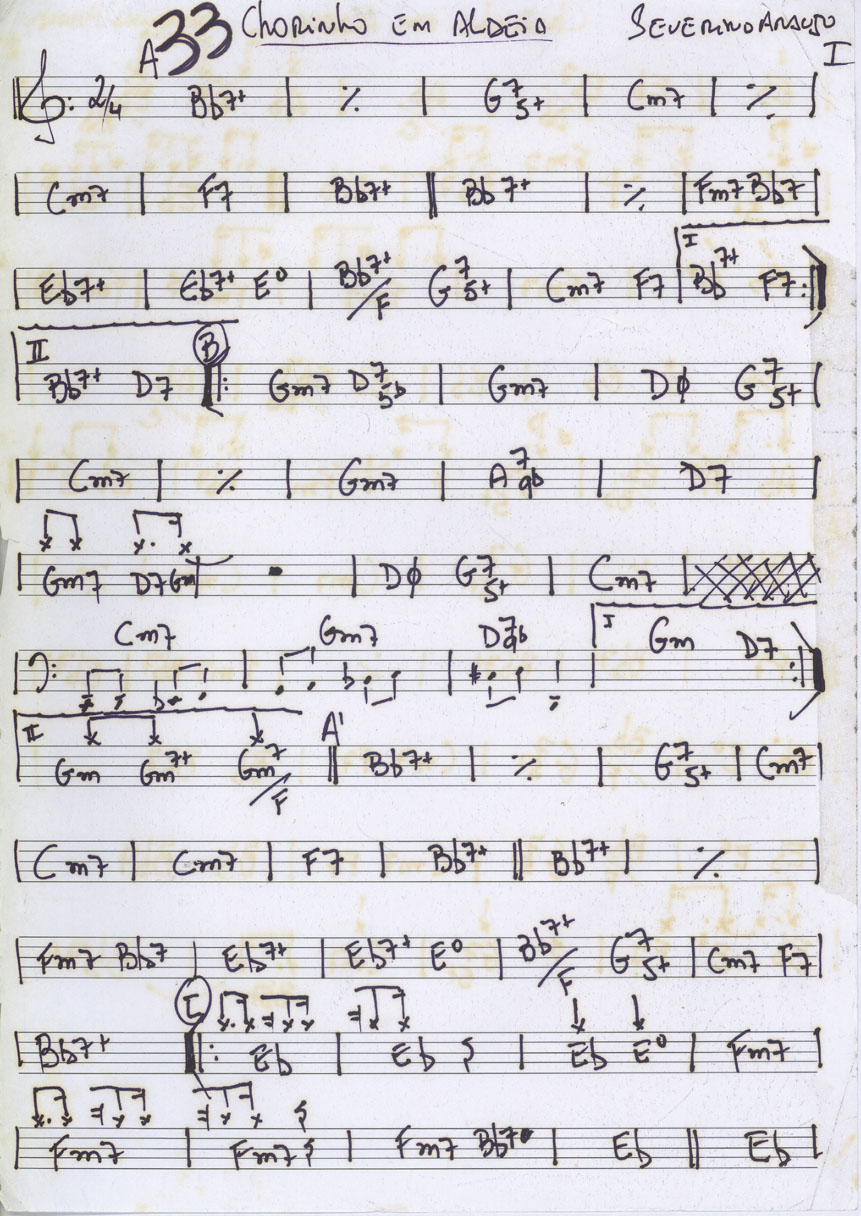 A 33 CHORINHO EM ALDEIA SEVERINO ARAUJO I
2/4 Bb7+ | ٪ | G7 5+ | Cm7 | ٪ |
Cm7 | F7 | Bb7+ || Bb7+ | ٪ | Fm7 Bb7 |
I
Eb7+ | Eb7+ E° | Bb7+/F G7 5+ | Cm7 F7 | Bb7+ F7 :|
II B
Bb7+ D7 |: Gm7 D7 5b | Gm7 | DØ G7 5+ |
Cm7 | ٪ | Gm7 | A7 9b | D7 |
Gm7 D7 Gm | | DØ G7 5+ | Cm7 |
Cm7 | Gm7 | D7 9b | I Gm D7 :|
II A'
Gm Gm7+ Gm7/F || Bb7+ | ٪ | G7 5+ | Cm7 |
Cm7 | Cm7 | F7 | Bb7+ || Bb7+ | ٪ |
Fm7 Bb7 | Eb7+ | Eb7+ E° | Bb7+/F G7 5+ | Cm7 F7 |
Bb7+ |: Eb | Eb | Eb E° | Fm7 |
Fm7 | Fm7 | Fm7 Bb7 | Eb || Eb |